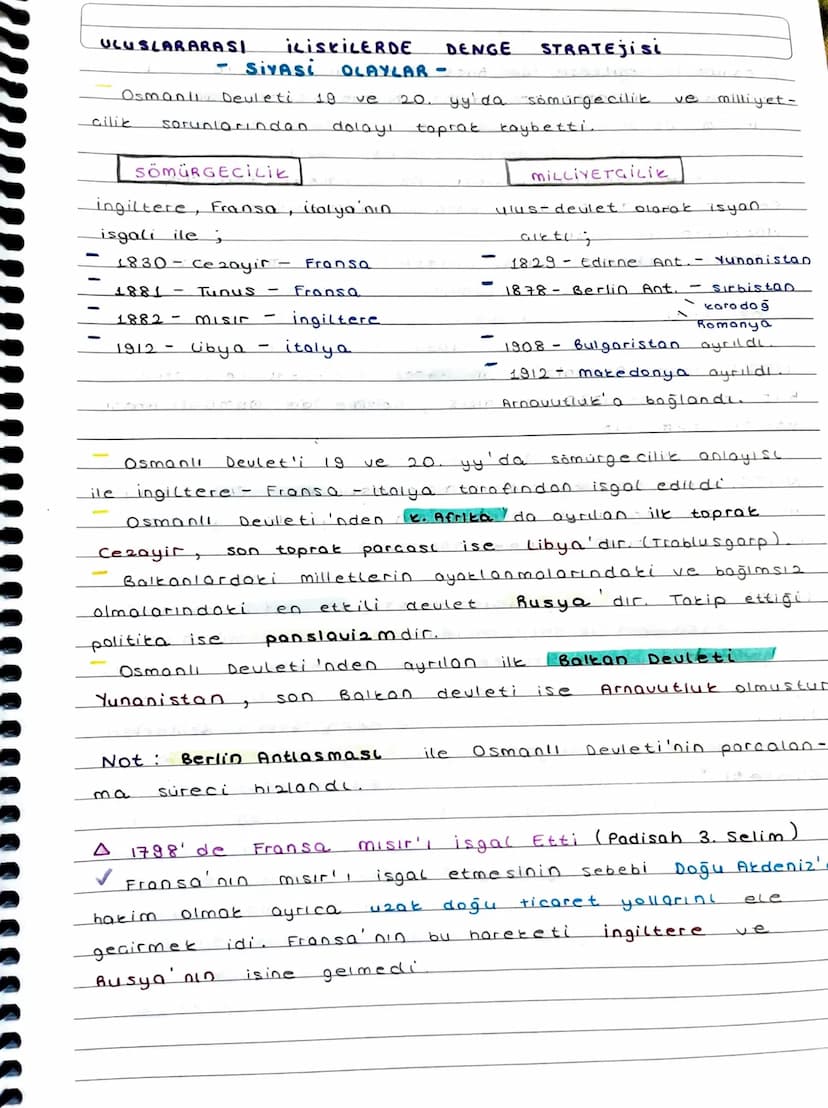 ULUSLARARASI İLİSKİLERDE DENGE STRATEJİSİ
- SİYASİ OLAYLAR -
- Osmanlı Devleti 19 ve 20. yy'da sömürgecilik ve milliyet-
cilik sorunlarından dolayı toprak kaybetti.
SÖMÜRGECİLİK
İngiltere, Fransa, İtalya'nın
isgali ile ;
- 1830 - Cezayir - Fransa
- 1881 - Tunus - Fransa
- 1882 - mısır - ingiltere
- 1912 - Libya - italya
MİLLİYETCİLİK
ulus-devlet olarak isyan
cıktı ;
- 1829 - Edirne Ant. - Yunanistan
- 1878 - Berlin Ant. - Sırbistan
karadağ
Romanya
- 1908 - Bulgaristan ayrıldı.
- 1912 - makedonya ayrıldı.
Arnavutluk'a bağlandı.
- Osmanlı Devlet'i 19 ve 20. yy'da sömürgecilik anlayısı
ile ingiltere - Fransa - italya tarafından isgal edildi
- Osmanlı Devleti'nden K. Afrika'da ayrılan ilk toprak
Cezayir, son toprak parcası ise Libya'dır. (Trablusgarp).
- Balkanlardaki milletlerin ayaklanmalarındaki ve bağımsız
olmalarındaki en etkili devlet Rusya'dır. Takip ettiği
politika ise panslavizmdir.
- Osmanlı Devleti'nden ayrılan ilk Balkan Devleti
Yunanistan, son Balkan devleti ise Arnavutluk olmustur
Not : Berlin Antlasması ile Osmanlı Devleti'nin parcalan-
ma süreci hızlandı.
△ 1798'de Fransa mısır'ı isgal Etti (Padisah 3. Selim)
✓ Fransa'nın mısır'ı isgal etmesinin sebebi Doğu Akdeniz'e
hakim olmak ayrıca uzak doğu ticaret yollarını ele
gecirmek idi. Fransa'nın bu hareketi ingiltere ve
Rusya'nın isine gelmedi.